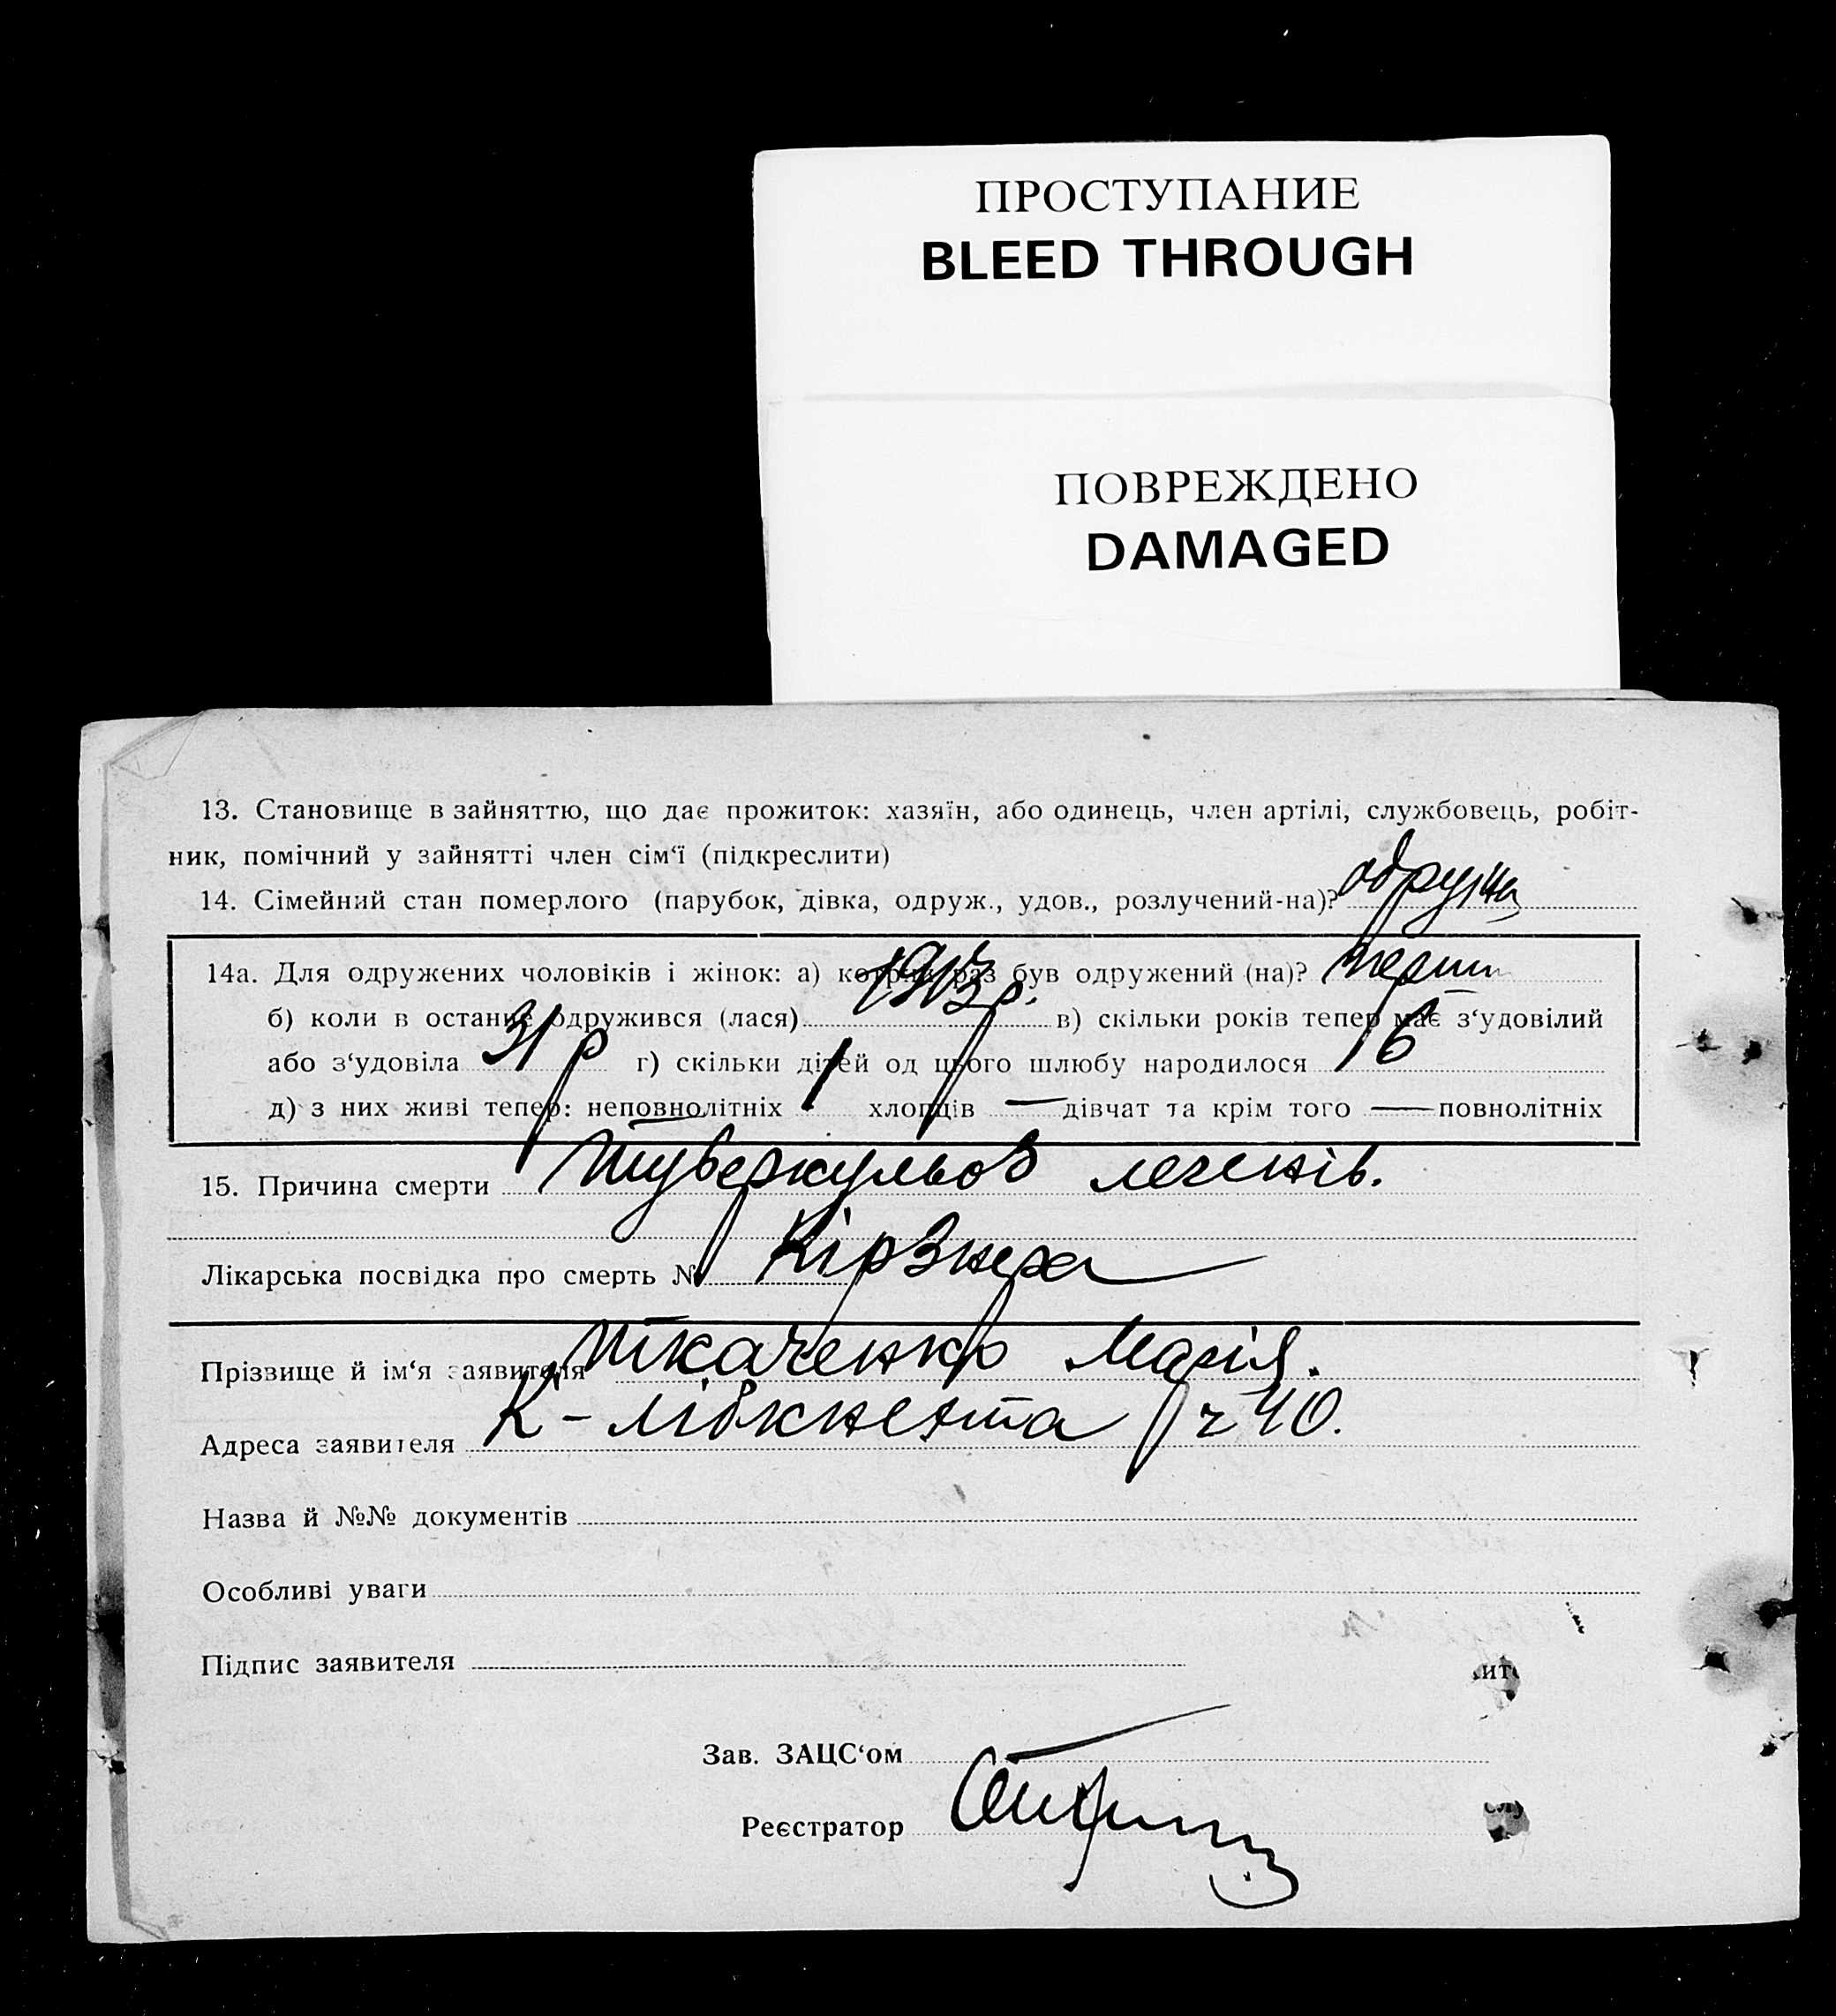 ПРОСТУПАНИЕ
BLEED THROUGH
ПОВРЕЖДЕНО
DAMAGED
13. Становище в зайняттю, що дає прожиток: хазяїн, або одинець, член артілі, службовець, робіт-
ник, помічний у зайнятті член сім‘ї (підкреслити)
14. Сімейний стан померлого (парубок, дівка, одруж., удов., розлучений-на)?
14а. Для одружених чоловіків і жінок: а) котрий раз був одружений (на)? перш
б) коли в останнє одружився (лася) 1913 р. в) скільки років тепер має з‘удовілий
або з‘удовіла 31 р г) скільки дітей од цього шлюбу народилося 6
д) з них живі тепер: неповнолітніх 1 хлопців — дівчат та крім того — повнолітніх
15. Причина смерти туберкульоз легенів.
Лікарська посвідка про смерть № Кірзнера
Прізвище й ім‘я заявителя Ткаченко Марія.
Адреса заявителя К-Лібкнехта ч 40.
Назва й №№ документів
Особливі уваги
Підпис заявителя
Зав. ЗАЦС‘ом
Реєстратор